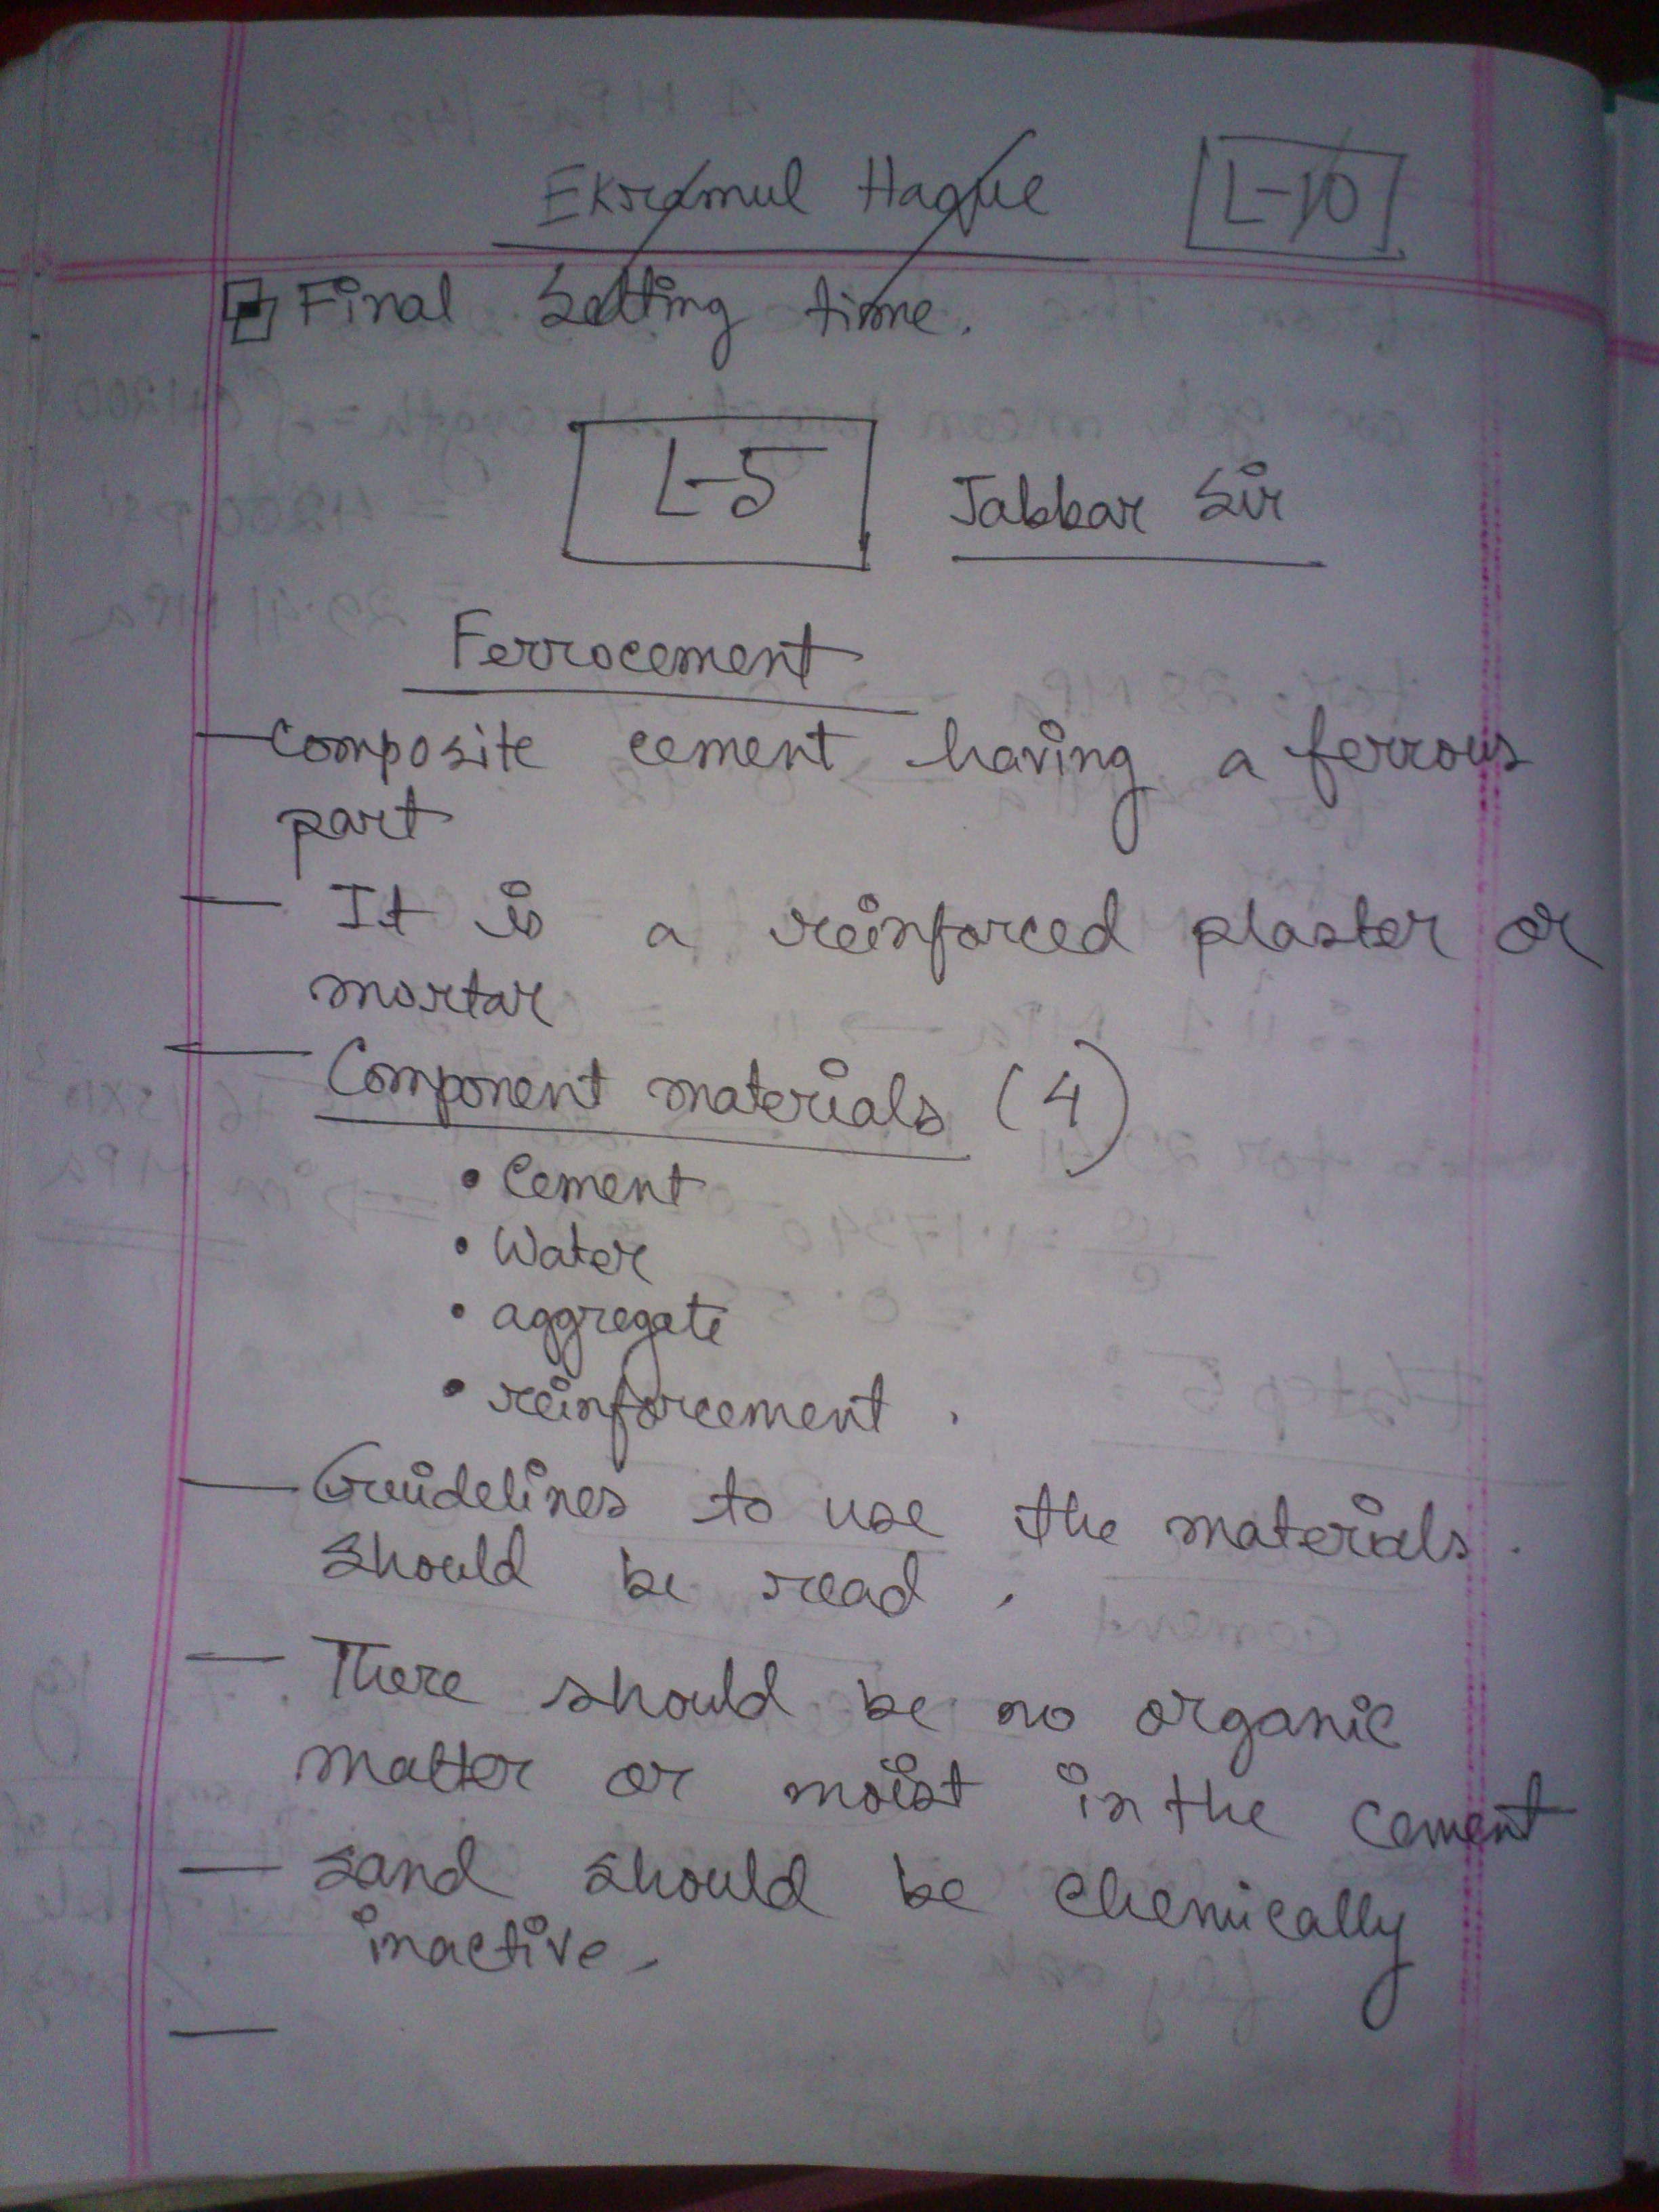 Ekramul Haque L-10
Final Setting time.
L-5 Jabbar Sir
Ferrocement
— Composite cement having a ferrous
part
— It is a reinforced plaster or
mortar
— Component materials (4)
• Cement
• Water
• aggregate
• reinforcement.
— Guidelines to use the materials.
should be read.
— There should be no organic
matter or moist in the cement
— Sand should be chemically
inactive.
—